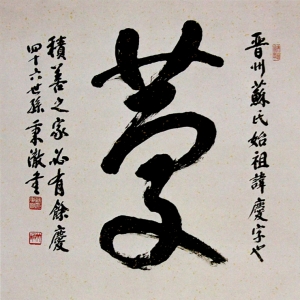 晉州蘇氏始祖諱慶字也
慶
積善之家必有餘慶
四十六世孫秉澈書